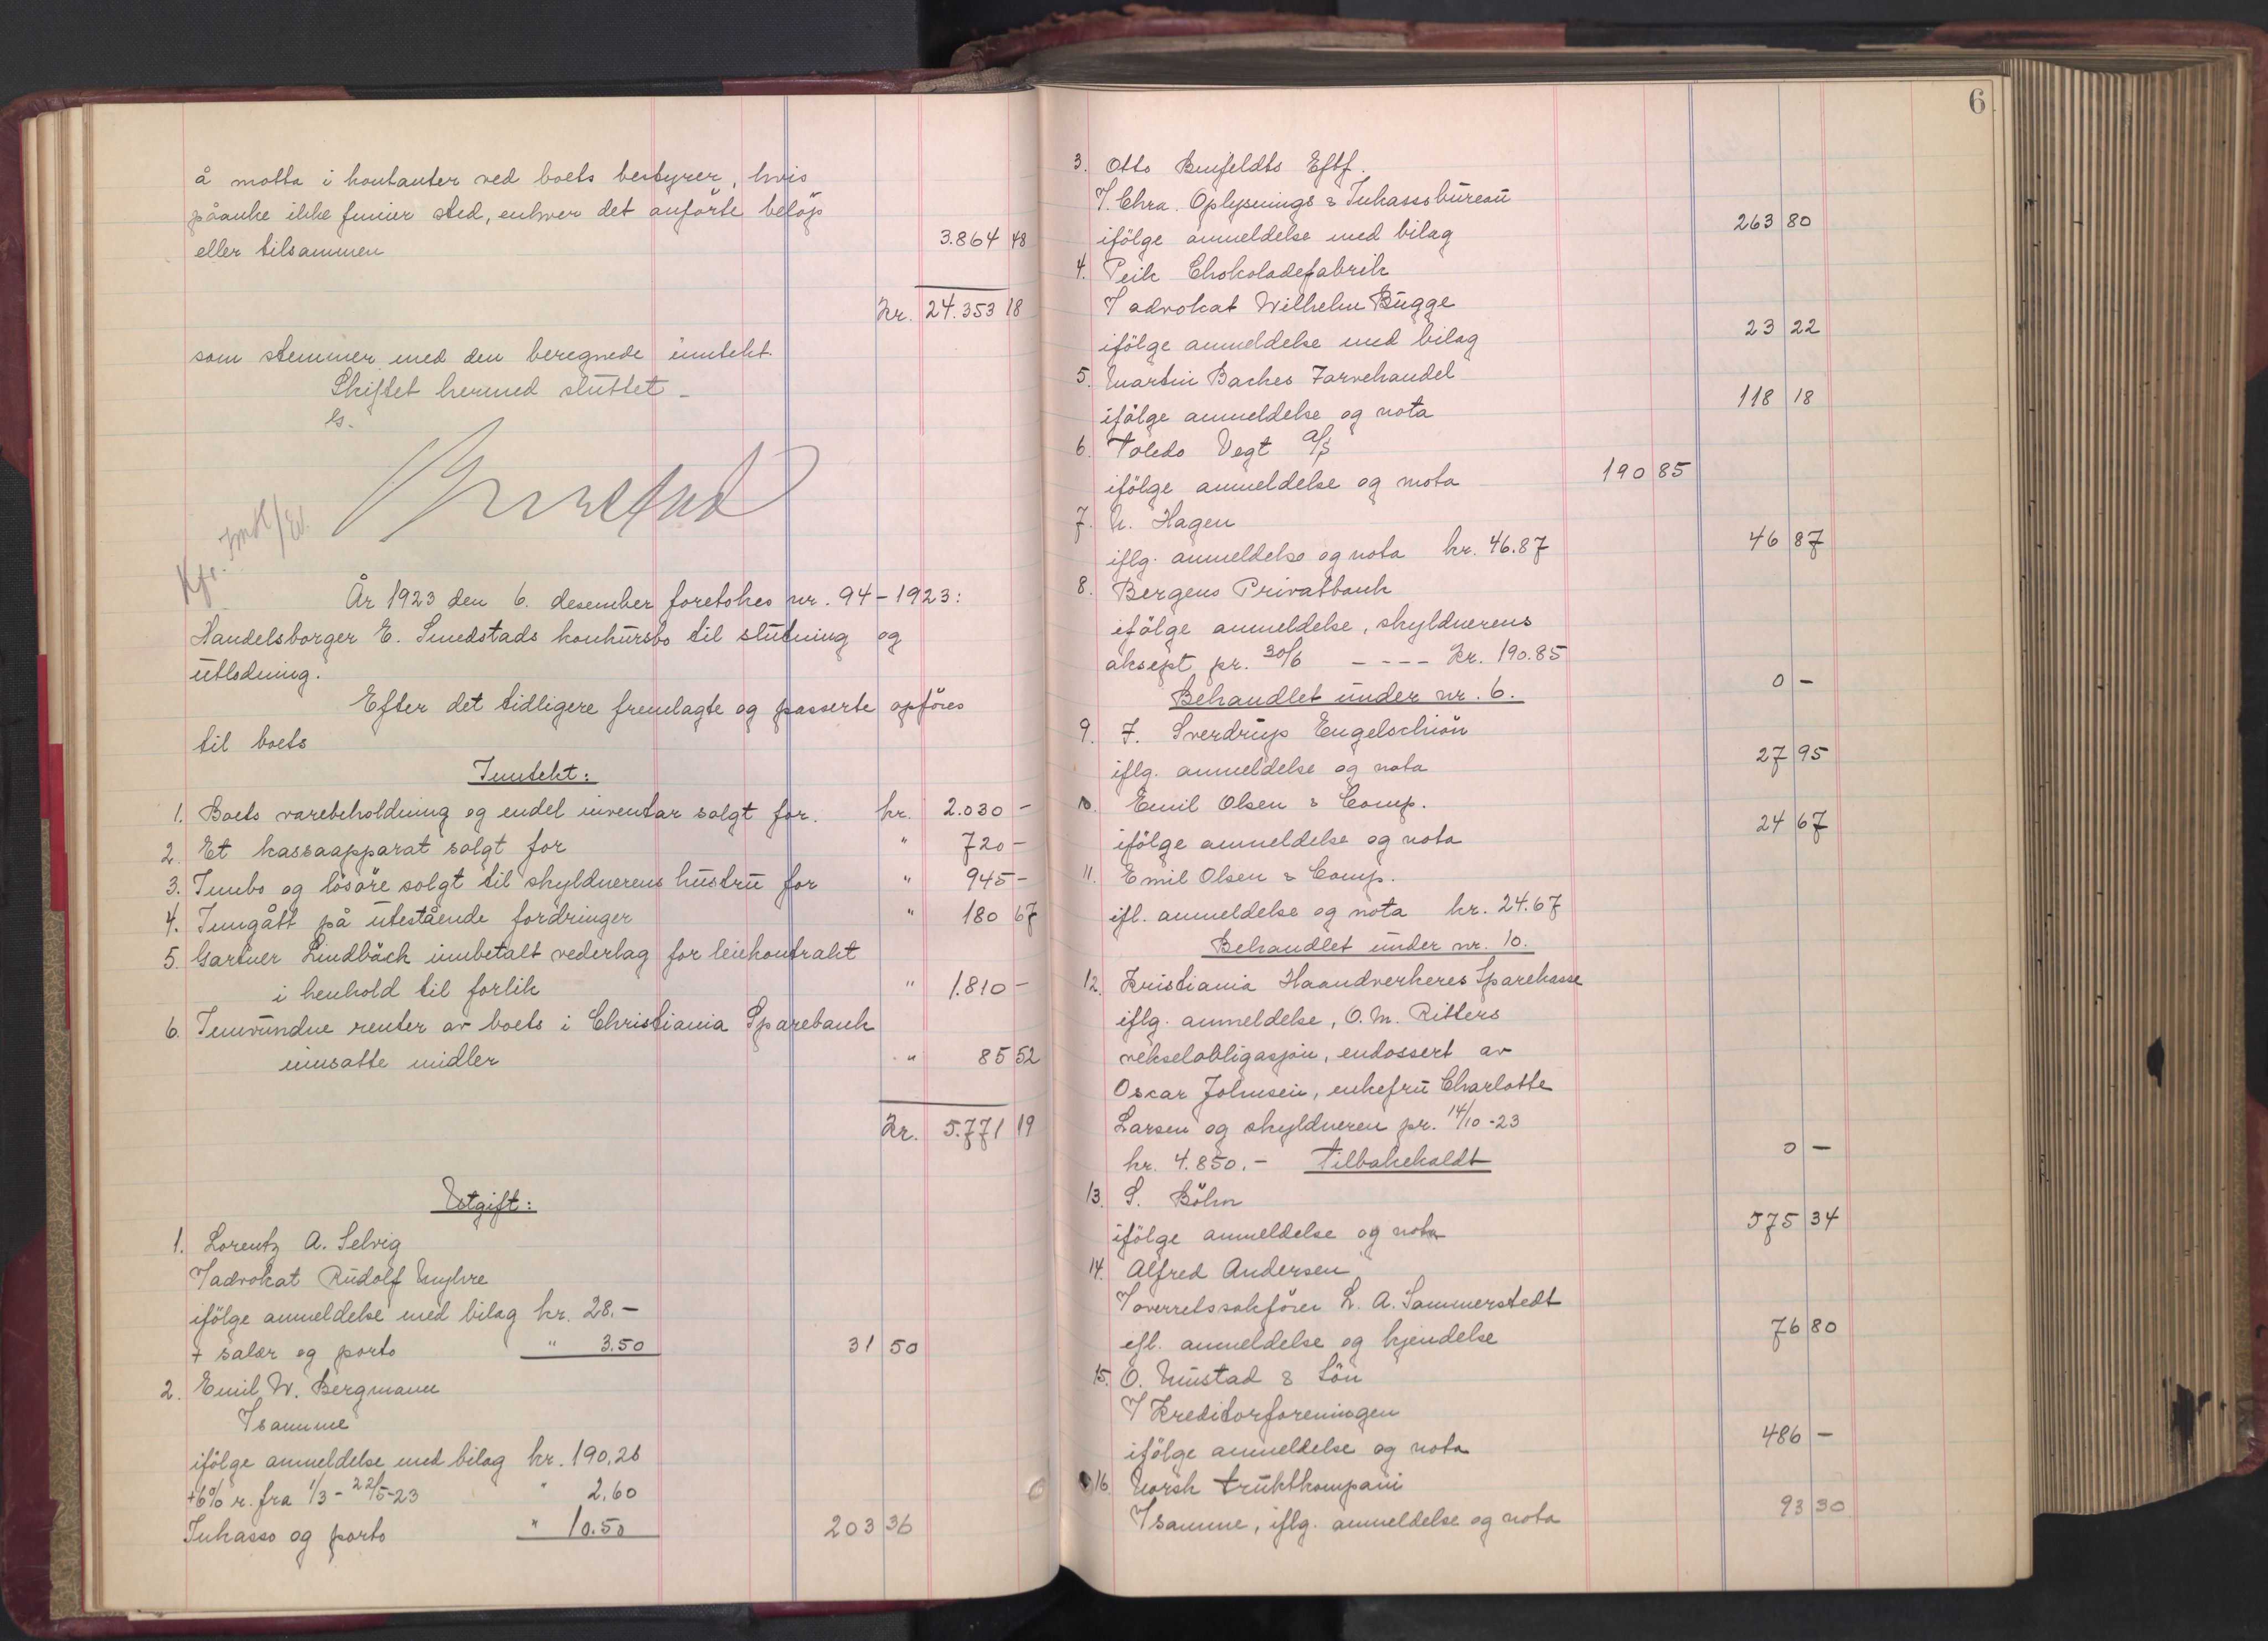 å motta i kontanter ved boets bestyrer, hvis
påanke ikke finner sted, enhver det anførte beløp
eller tilsammen 3.864 48
Kr. 24.353 18
som stemmer med den beregnede inntekt.
Skiftet hermed sluttet
År 1923 den 6. desember foretokes nr. 94-1923:
Handelsborger E. Smedstads konkursbo til slutning og
utlodning.
Efter det tidligere fremlagte og passerte opføres
til boets
Inntekt:
1. Boets varebeholdning og endel inventar solgt for. kr. 2.030 -
2. Et kassaapparat solgt for " 720 -
3. Innbo og løsøre solgt til skyldnerens hustru for " 945 -
4. Inngått på utestående fordringer " 180 67
5. Gartner Lindbäck innbetalt vederlag for leiekontrakt
i henhold til forlik " 1.810 -
6. Innvundne renter av boets i Christiania Sparebank
innsatte midler " 85 52
Kr. 5.771 19
Utgift:
1. Lorentz A. Selvig
V advokat Rudolf Myhre
ifölge anmeldelse med bilag kr. 28.-
+ salær og porto " 3.50 31 50
2. Emil W. Bergmann
V samme
ifölge anmeldelse med bilag kr. 190.26
+6% r. fra 1/3 - 22/5-23 " 2.60
Inkasso og porto " 10.50 203 36
6
3. Otto Eftf.
V. Chra. Oplysnings & Inkassobureau
ifölge anmeldelse med bilag 263 80
4. Peik Chokoladefabrik
V advokat Wilhelm Bugge
ifölge anmeldelse med bilag 23 22
5. Martin Baches Farvehandel
ifölge anmeldelse og nota 118 18
6. Toledo Vegt A/S
ifölge anmeldelse og nota 190 85
7. N. Hagen
iflg. anmeldelse og nota kr. 46.87 46 87
8. Bergens Privatbank
ifölge anmeldelse, skyldnerens
aksept pr. 30/6 ---- Kr. 190.85
Behandlet under nr. 6. 0 -
9. F. Sverdrup Engelschiön
iflg. anmeldelse og nota 27 95
10. Emil Olsen & Comp.
ifölge anmeldelse og nota 24 67
11. Emil Olsen & Comp.
ifl. anmeldelse og nota kr. 24.67
Behandlet under nr. 10.
12. Kristiania Haandverkeres Sparekasse
iflg. anmeldelse, O. M. Ritters
vekselobligasjon, endossert av
Oscar Johnsen, enkefru Charlotte
Larsen og skyldneren pr. 14/10-23
kr. 4.850.- Tilbakekaldt 0 -
13. S. Böhn
ifölge anmeldelse og nota 575 34
14. Alfred Andersen
V overretssakförer L. A. Sammerstedt
efl. anmeldelse og kjendelse 76 80
15. O. Mustad & Sön
V Kreditorforeningen
ifölge anmeldelse og nota 486 -
16. Norsk Fruktkompani
V samme, iflg. anmeldelse og nota 93 30